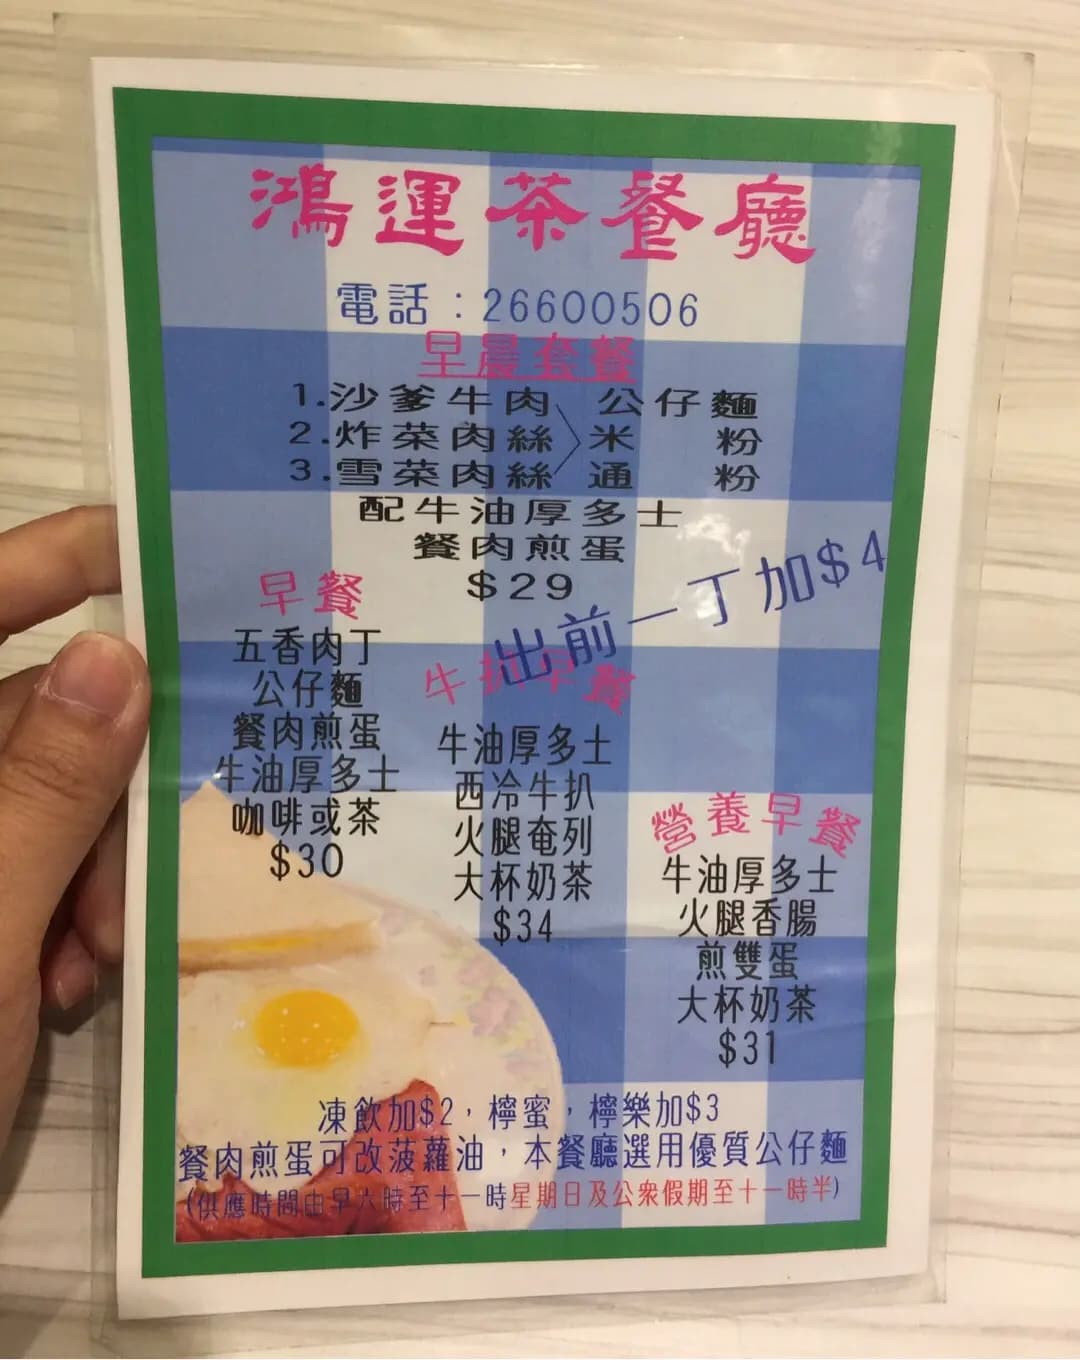 鴻運茶餐廳
電話：26600506
早晨套餐
1.沙爹牛肉 公仔麵
2.炸菜肉絲 米粉
3.雪菜肉絲 通粉
配牛油厚多士
餐肉煎蛋
$29
出前一丁加$4
早餐
五香肉丁
公仔麵
餐肉煎蛋
牛油厚多士
咖啡或茶
$30
牛扒早餐
牛油厚多士
西冷牛扒
火腿奄列
大杯奶茶
$34
營養早餐
牛油厚多士
火腿香腸
煎雙蛋
大杯奶茶
$31
凍飲加$2，檸蜜，檸樂加$3
餐肉煎蛋可改菠蘿油，本餐廳選用優質公仔麵
(供應時間由早六時至十一時星期日及公眾假期至十一時半)